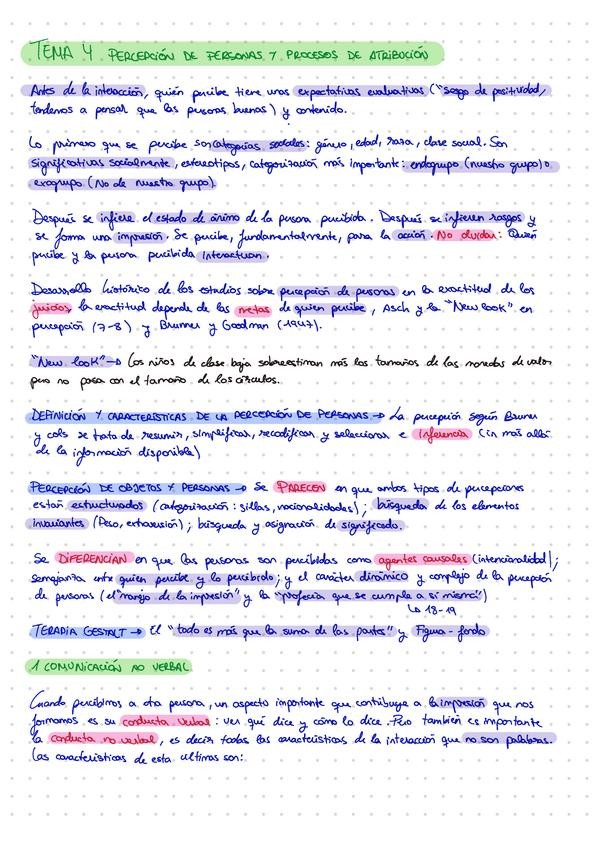 TEMA 4 PERCEPCIÓN DE PERSONAS Y PROCESOS DE ATRIBUCIÓN
Antes de la interacción, quién percibe tiene unas expectativas evaluativas ("sesgo de positividad,
tendemos a pensar que las personas buenas) y contenido.
Lo primero que se percibe son categorías sociales: género, edad, raza, clase social. Son
significativas socialmente, estereotipos, categorización más importante: endogrupo (nuestro grupo) o
exogrupo (No de nuestro grupo).
Después se infiere el estado de ánimo de la persona percibida. Después se infieren rasgos y
se forma una impresión. Se percibe, fundamentalmente, para la acción. No olvidar: Quien
percibe y la persona percibida interactuan.
Desarrollo histórico de los estudios sobre percepción de personas en la exactitud de los
juicios, la exactitud depende de las metas de quien percibe, Asch y la "New look" en
percepción (7-8) y Bruner y Goodman (1947).
"New look" → Los niños de clase baja sobreestiman más los tamaños de las monedas de valor
pero no pasa con el tamaño de los círculos.
DEFINICIÓN Y CARACTERÍSTICAS DE LA PERCEPCIÓN DE PERSONAS → La percepción según Bruner
y cols se trata de resumir, simplificar, recodificar y seleccionar e Inferencia (ir más allá
de la información disponible)
PERCEPCIÓN DE OBJETOS Y PERSONAS → Se PARECEN en que ambos tipos de percepciones
están estructurados (categorización: sillas, nacionalidades); búsqueda de los elementos
invariantes (Peso, extraversión); búsqueda y asignación de significado.
Se DIFERENCIAN en que las personas son percibidas como agentes causales (intencionalidad);
semejanza entre quien percibe y lo percibido; y el carácter dinámico y complejo de la percepción
de personas (el "manejo de la impresión" y la "profecía que se cumple a sí misma")
↳ 18-19
TERAPIA GESTALT → El "todo es más que la suma de las partes" y Figura-fondo
1 COMUNICACIÓN NO VERBAL
Cuando percibimos a otra persona, un aspecto importante que contribuye a la impresión que nos
formamos es su conducta verbal: ver qué dice y cómo lo dice. Pero también es importante
la conducta no verbal, es decir todas las características de la interacción que no son palabras.
Las características de esta ultimas son: